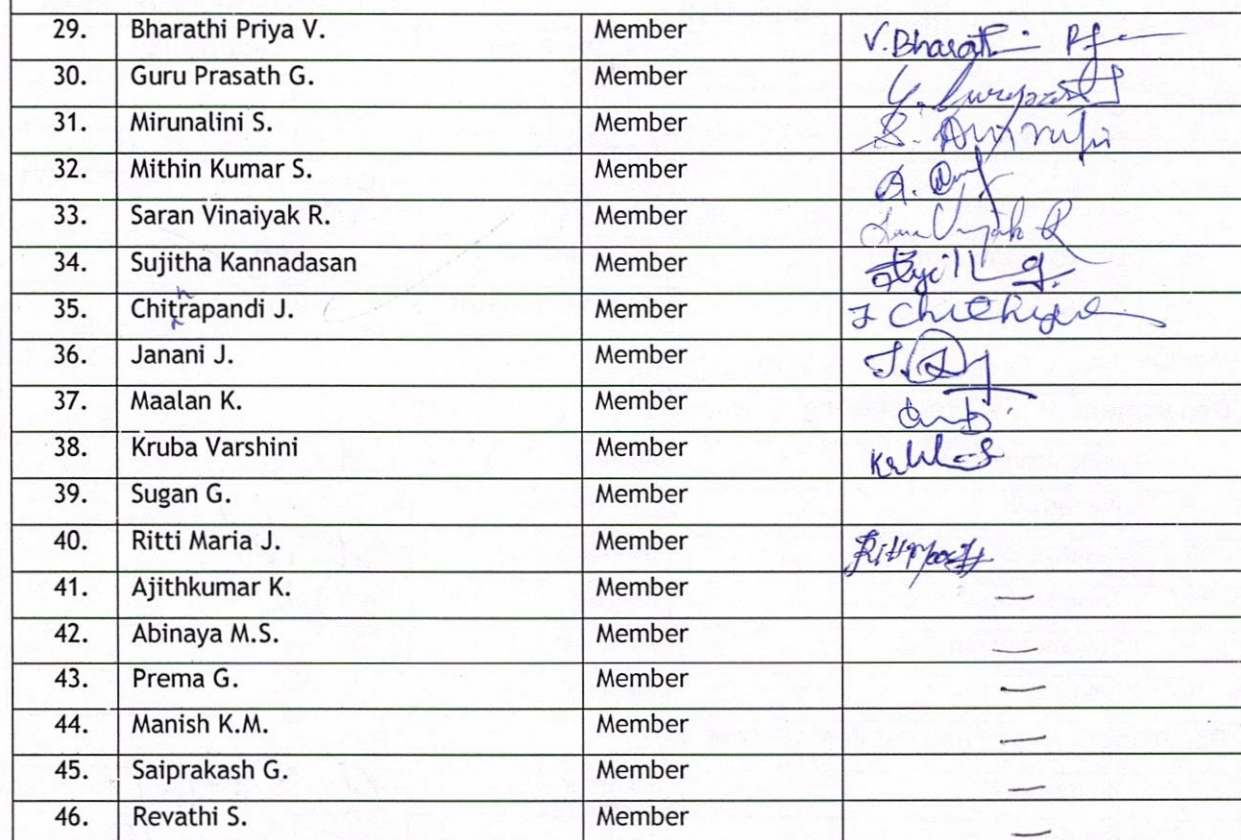 29. Bharathi Priya V. Member V. Bharathi
30. Guru Prasath G. Member
31. Mirunalini S. Member
32. Mithin Kumar S. Member
33. Saran Vinaiyak R. Member
34. Sujitha Kannadasan Member
35. Chitrapandi J. Member
36. Janani J. Member
37. Maalan K. Member
38. Kruba Varshini Member
39. Sugan G. Member
40. Ritti Maria J. Member
41. Ajithkumar K. Member —
42. Abinaya M.S. Member —
43. Prema G. Member —
44. Manish K.M. Member —
45. Saiprakash G. Member —
46. Revathi S. Member —